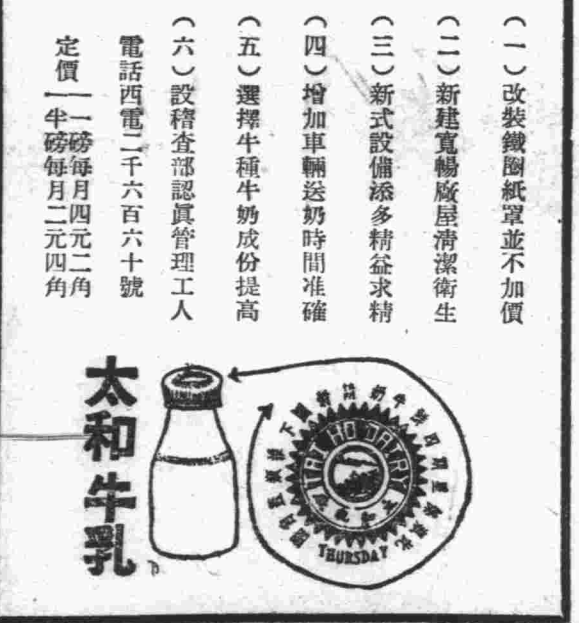 （一）改裝鐵圈紙罩並不加價
（二）新建寬暢廠屋清潔衛生
（三）新式設備添多精益求精
（四）增加車輛送奶時間准確
（五）選擇牛種牛奶成份提高
（六）設稽查部認眞管理工人
電話西電二千六百六十號
定價
一磅每月四元二角
半磅每月二元四角
太和牛乳
TAI HO DAIRY
THURSDAY